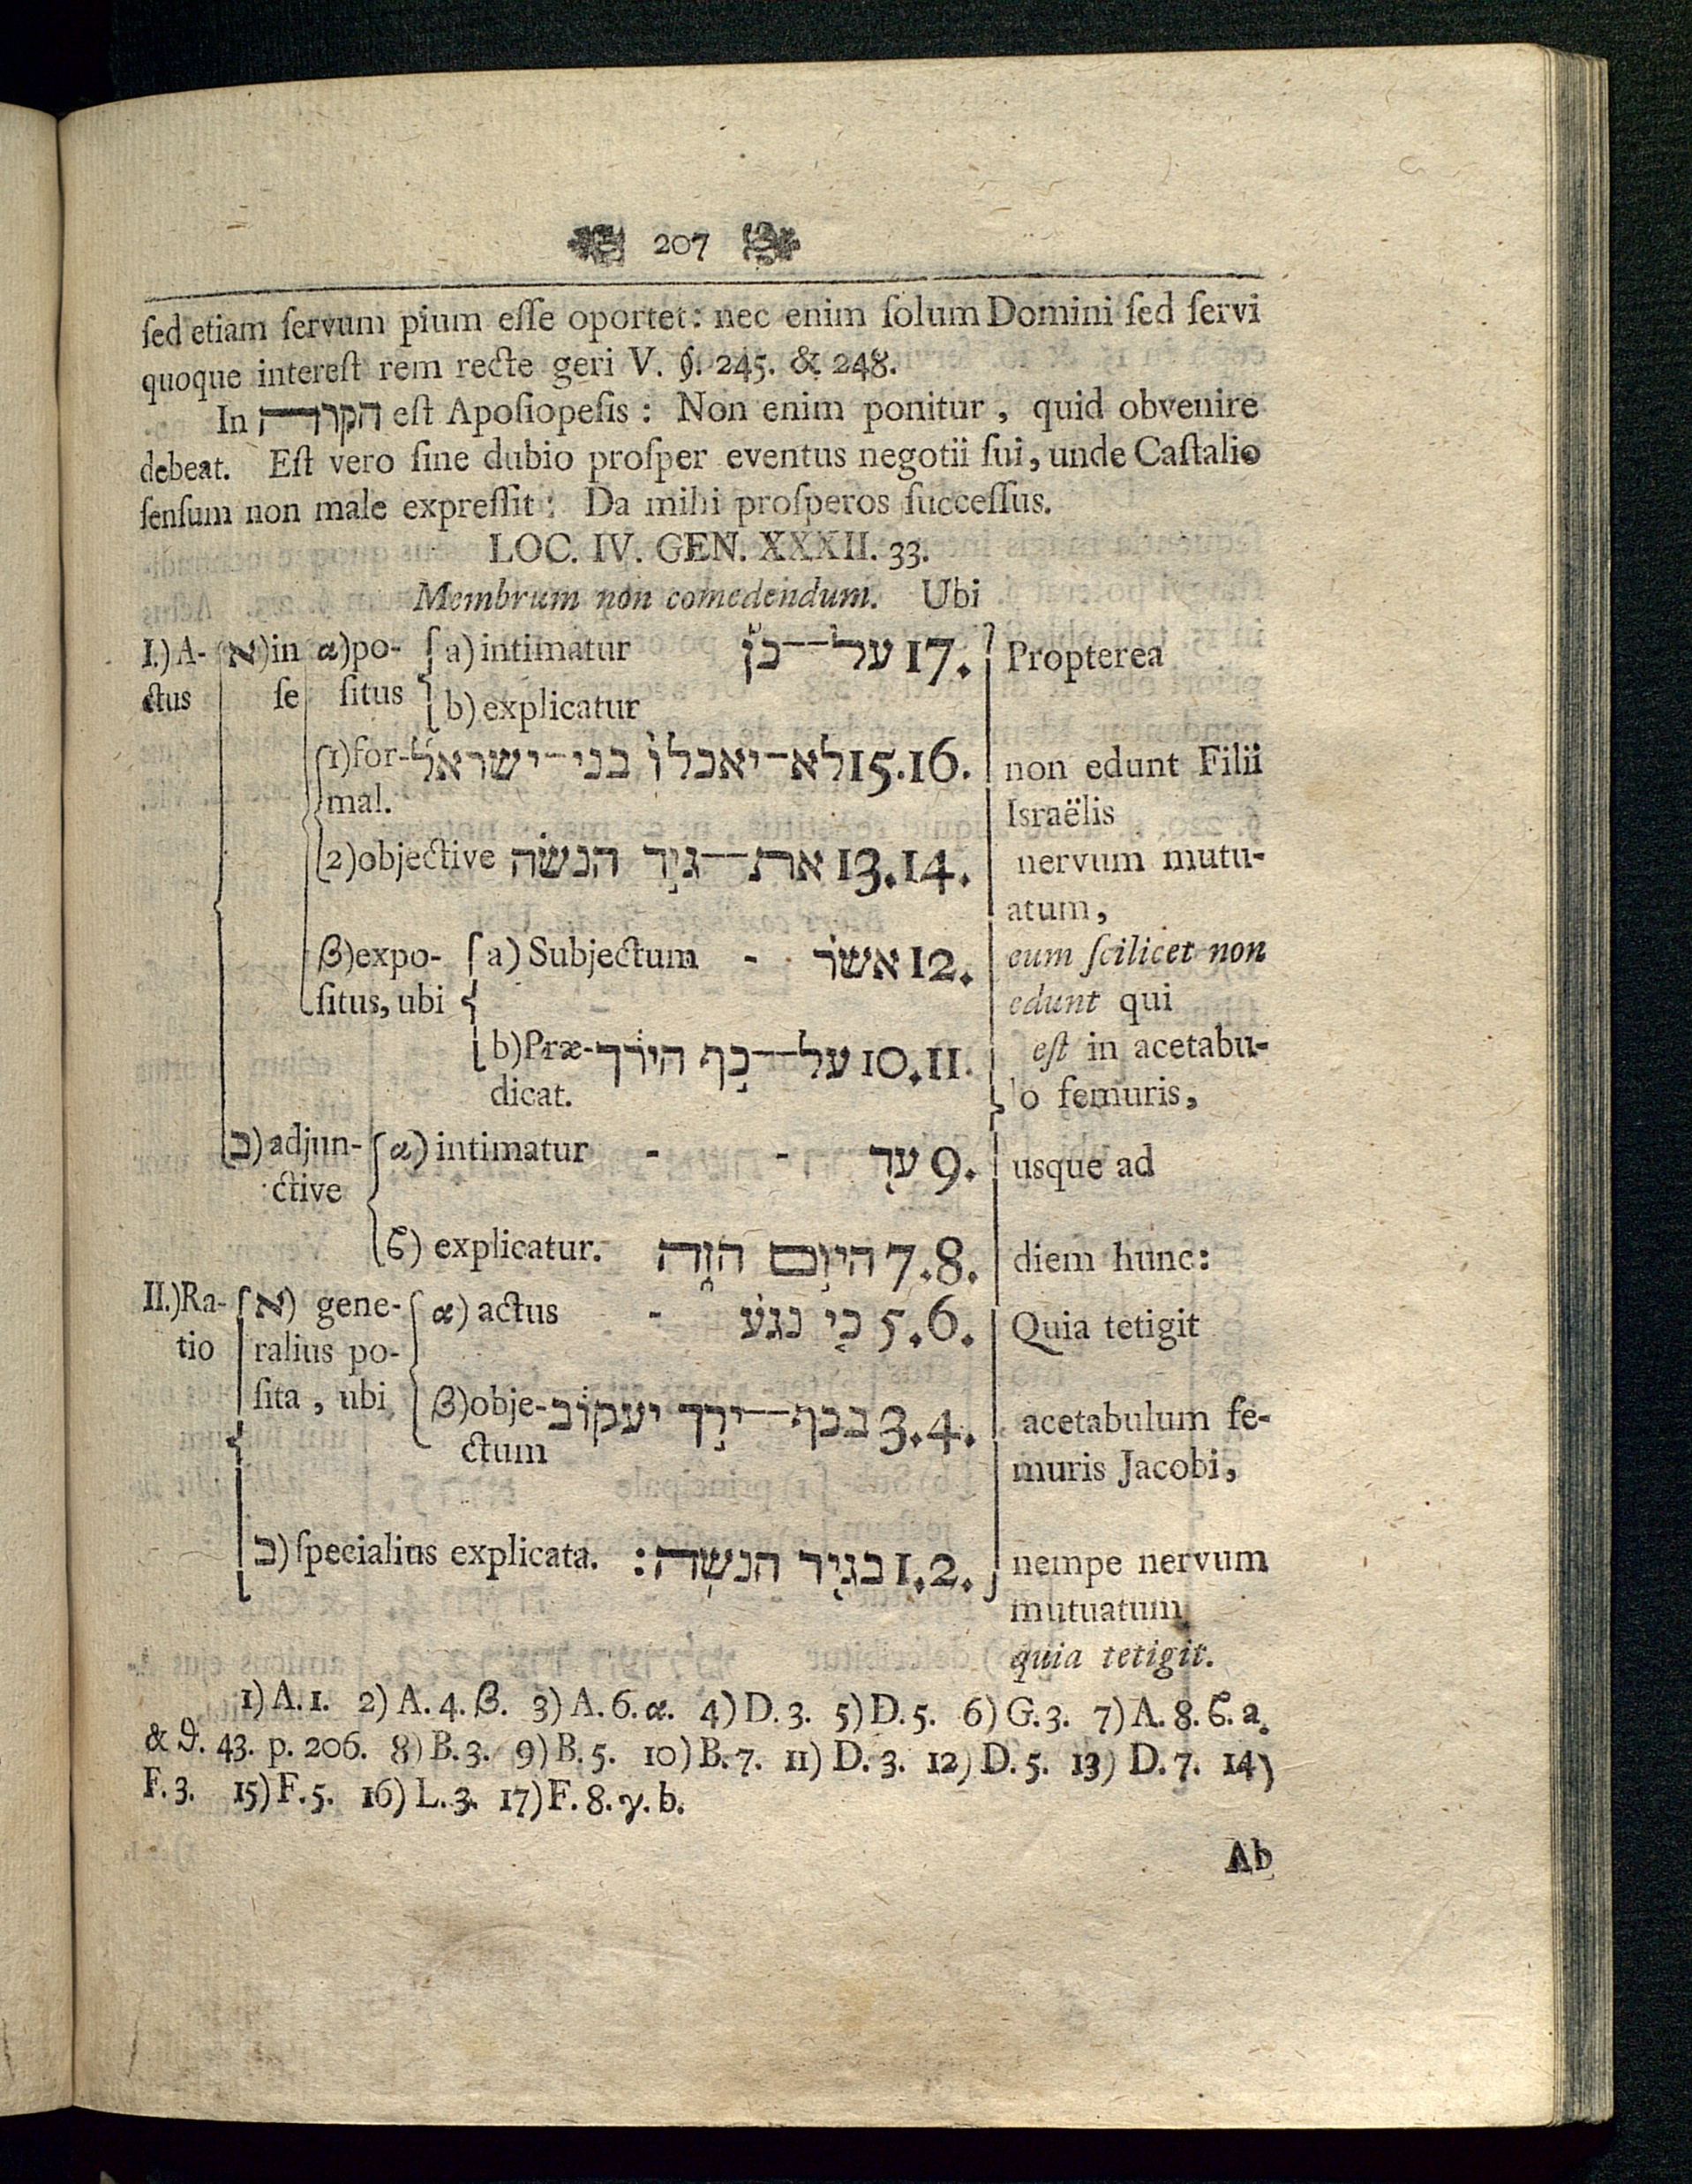 207
ſed etiam ſervum pium eſſe oportet: nec enim ſolum Domini ſed ſervi
quoque intereſt rem recte geri V. §. 245. & 248.
In הקרה eſt Apoſiopeſis: Non enim ponitur, quid obvenire
debeat. Eſt vero ſine dubio proſper eventus negotii ſui, unde Caſtalio
ſenſum non male expreſſit: Da mihi proſperos ſucceſſus.
LOC. IV. GEN. XXXII. 33.
Membrum non comedendum. Ubi
I.) A- א) in α) po- a) intimatur על—כן 17. Propterea
ctus ſe ſitus b) explicatur
1) for- לא—יאכלו בני—ישראל 15.16. non edunt Filii
mal. Israëlis
2) objective את—גיד הנשה 13.14. nervum mutu-
atum,
β) expo- a) Subjectum - אשר 12. eum ſcilicet non
ſitus, ubi edunt qui
b) Præ- על—כף הירך 10.11. eſt in acetabu-
dicat. lo femuris,
ב) adjun- α) intimatur - - עד 9. usque ad
ctive
ϐ) explicatur. היום הזה 7.8. diem hunc:
II.) Ra- א) gene- α) actus - כי נגע 5.6. Quia tetigit
tio ralius po-
ſita, ubi β) obje- בכף—ירך יעקוב 3.4. acetabulum fe-
ctum muris Jacobi,
ב) ſpecialius explicata. בגיד הנשה: 1.2. nempe nervum
mutuatum
quia tetigit.
1) A. 1. 2) A. 4. β. 3) A. 6. α. 4) D. 3. 5) D. 5. 6) G. 3. 7) A. 8. ϐ. a.
& ϑ. 43. p. 206. 8) B. 3. 9) B. 5. 10) B. 7. 11) D. 3. 12) D. 5. 13) D. 7. 14)
F. 3. 15) F. 5. 16) L. 3. 17) F. 8. γ. b.
Ab